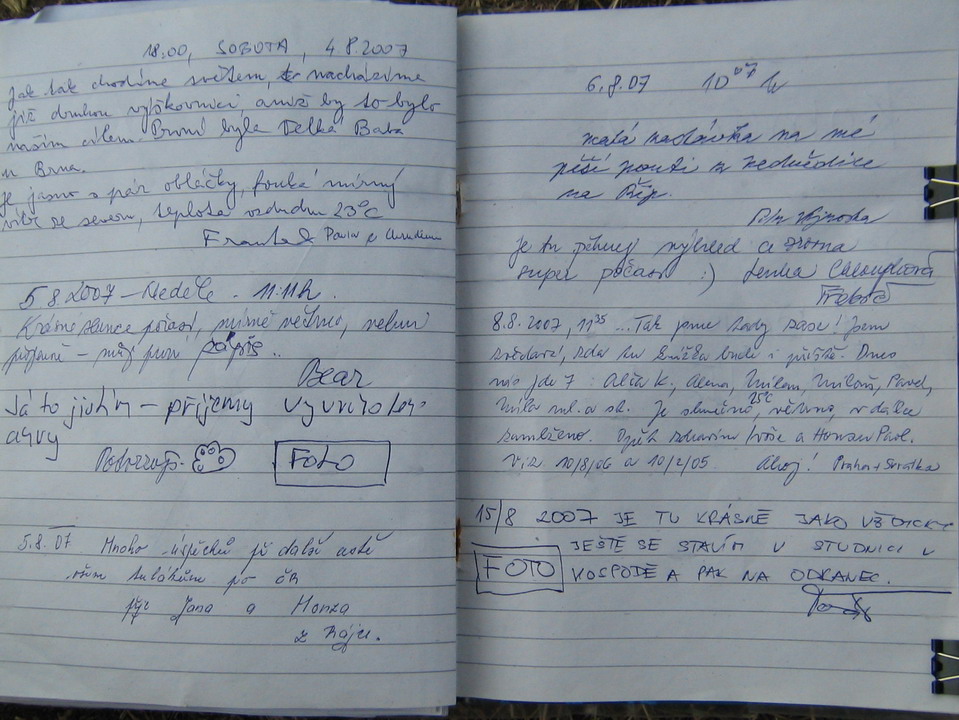 18:00, SOBOTA, 4.8.2007
Jak tak chodíme světem, nacházíme
již druhou výškovnici, aniž by to bylo
naším cílem. První byla Velká Baba
u Brna.
Je jasno s pár obláčky, fouká mírný
vítr ze severu, teplota vzduchu 23°C
Pavla z Chrudimi
5.8.2007 – Neděle - 11:11h.
Krásné slunce počasí, mírně větrno, nebui
příjemně – můj první zápis..
Bear
Já to jistím – příjemný
FOTO
5.8.07 Mnoho úspěchů při další cestě
všem tulákům po ČR
přeje Jana a Honza
z Ráje.
6.8.07 10 07 h
malá zastávka na mé
pěší pouti z Nedvědice
na Říp.
Je tu pěkný výhled a zrovna
super počasí :) Lenka
Třebíč
8.8.2007, 11 35 ... Tak jsme tady zase! Jsem
zvědavá, zda tu knížka bude i příště. Dnes
nás jde 7: Alča K., Alena, Milan, Miloš, Pavel,
Míla ml. a st. Je slunečno, 25°C, větrno, v dálce
zamlženo. Opět zdravím
Viz 10/8/06 a 10/2/05. Ahoj! Praha + Svratka
15/8 2007 JE TU KRÁSNĚ JAKO VŽDICKY
JEŠTĚ SE STAVÍM V STUDNICI V
FOTO HOSPODĚ A PAK NA ODRANEC.